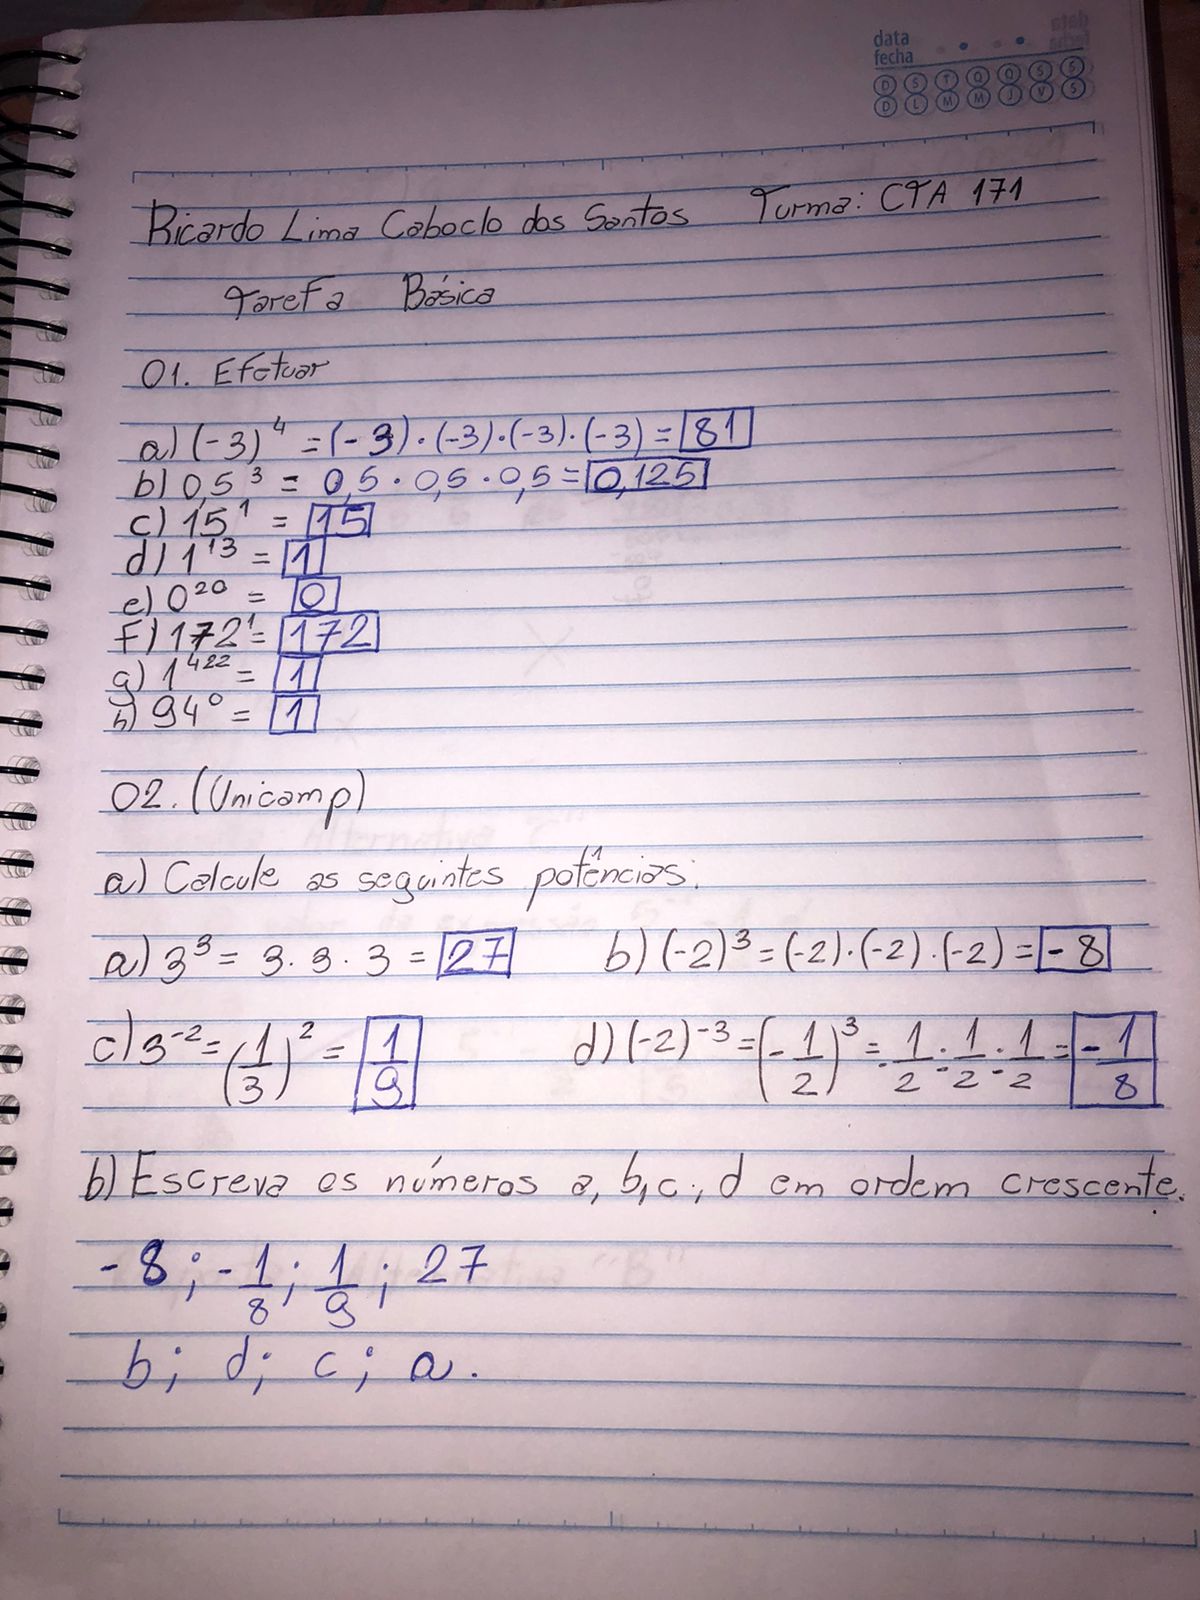 data
fecha
D S T Q Q S S
D L M M J V S
Ricardo Lima Caboclo dos Santos Turma: CTA 171
Tarefa Básica
01. Efetuar
a) (-3)⁴ = (-3)·(-3)·(-3)·(-3) = 81
b) 0,5³ = 0,5·0,5·0,5 = 0,125
c) 15¹ = 15
d) 1¹³ = 1
e) 0²⁰ = 0
f) 172¹ = 172
g) 1⁴²² = 1
h) 94⁰ = 1
02. (Unicamp)
a) Calcule as seguintes potências:
a) 3³ = 3·3·3 = 27 b) (-2)³ = (-2)·(-2)·(-2) = -8
c) 3⁻² = (1/3)² = 1/9 d) (-2)⁻³ = (-1/2)³ = -1/2·-1/2·-1/2 = -1/8
b) Escreva os números a, b, c, d em ordem crescente.
-8; -1/8; 1/9; 27
b; d; c; a.